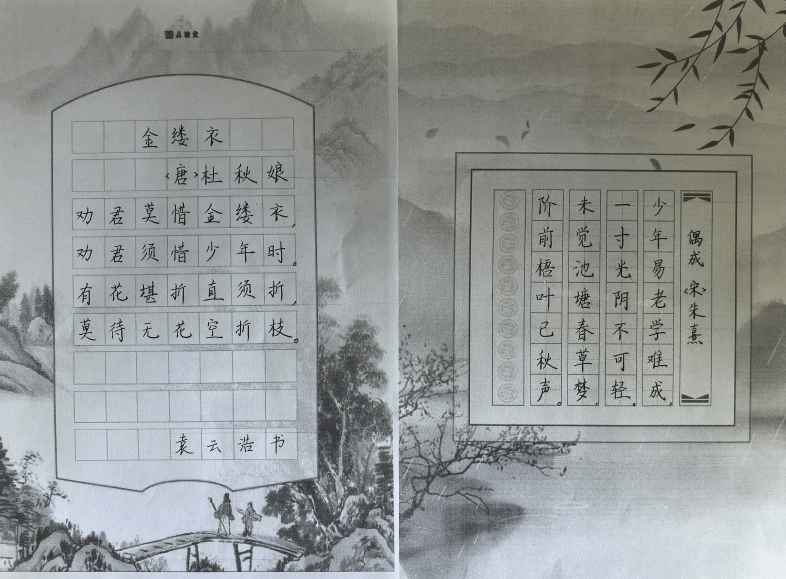 金缕衣
<唐>杜秋娘
劝君莫惜金缕衣，
劝君须惜少年时。
有花堪折直须折，
莫待无花空折枝。
袁云浩书
偶成 <宋>朱熹
少年易老学难成，
一寸光阴不可轻。
未觉池塘春草梦，
阶前梧叶已秋声。